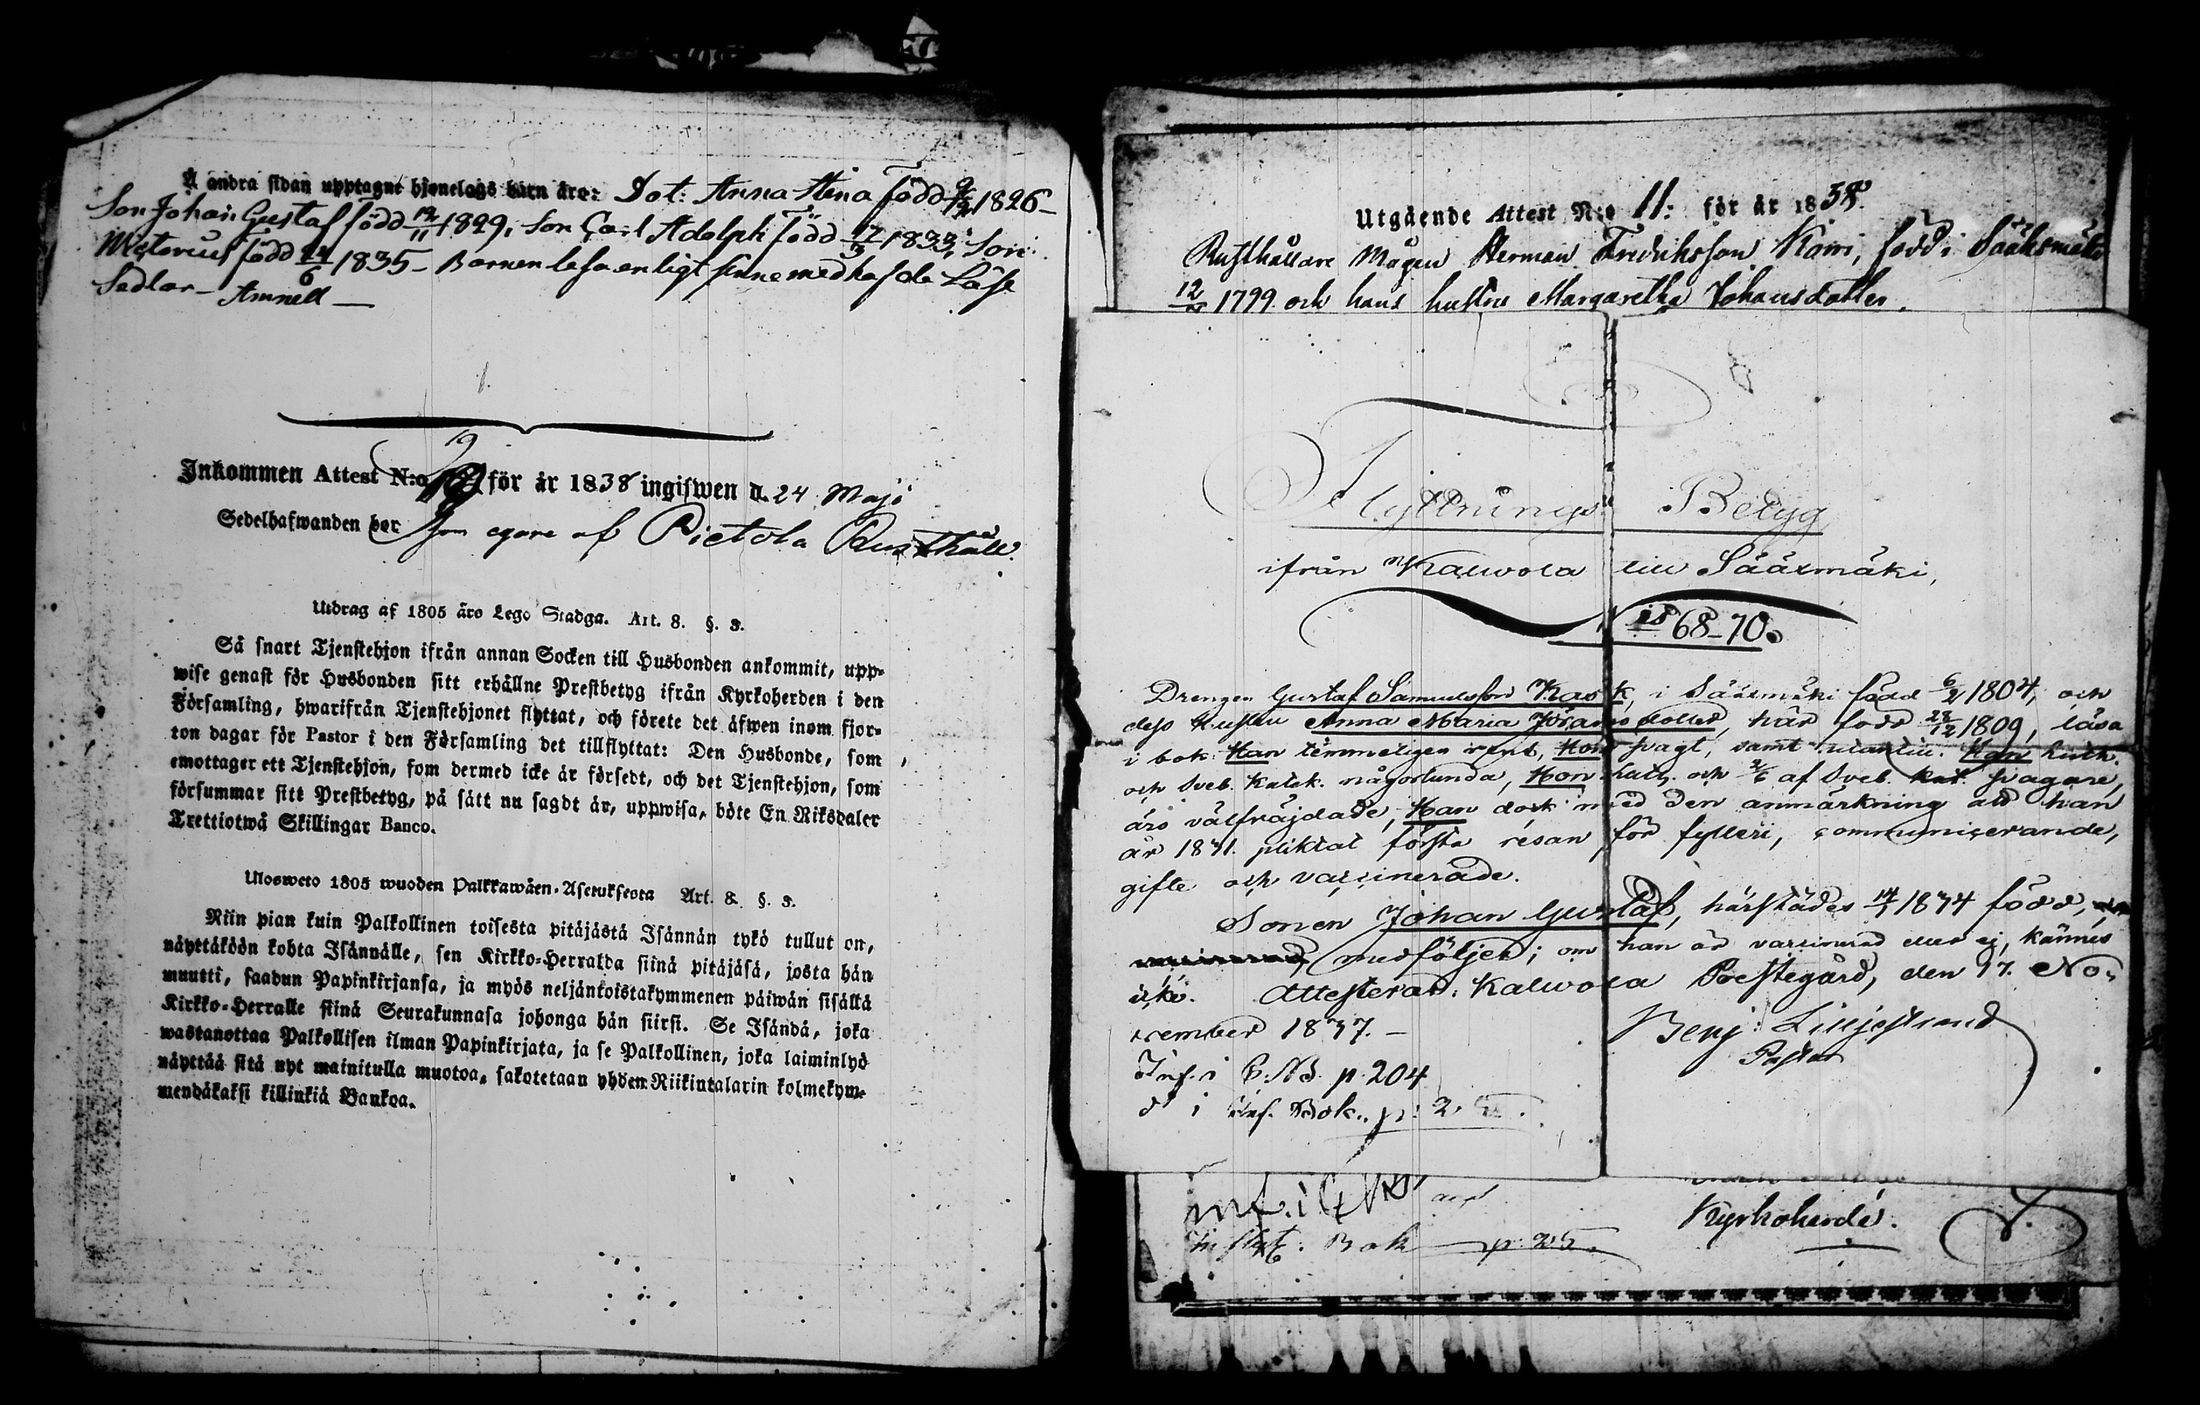 Å andra sidan upptagne hjonelags barn äro: Dot: Anna Stina född 1826 –
Son Johan Gustaf född 12/11 1829, Son Carl Adolph född 17/3 1833; Son:
Victorius född 24/6 1835 – Barnen läsa enligt sinne medhafde Läse
Sedlar –
Inkommen Attest N:o 19 för år 1838 ingifwen d. 24 Maji
Sedelhafwanden bor som egare af Pietola Rusthåll.
Utdrag af 1805 års Lego Stadga. Art. 8. §. 3.
Så snart Tjenstehjon ifrån annan Socken till Husbonden ankommit, upp-
wise genast för Husbonden sitt erhållne Prestbetyg ifrån Kyrkoherden i den
Församling, hwarifrån Tjenstehjonet flyttat, och förete det äfwen inom fjor-
ton dagar för Pastor i den Församling det tillflyttat: Den Husbonde, som
emottager ett Tjenstehjon, som dermed icke är försedt, och det Tjenstehjon, som
försummar sitt Prestbetyg, på sätt nu sagdt är, uppwisa, böte En Riksdaler
Trettiotwå Skillingar Banco.
Ulosweto 1805 wuoden Palkkawäen-Asetuksesta Art. 8. §. 3.
Niin pian kuin Palkollinen toisesta pitäjästä Isännän tykö tullut on,
näyttäköön kohta Isännälle, sen Kirkko-Herralda siinä pitäjäsä, josta hän
muutti, saadun Papinkirjansa, ja myös neljäntoistakymmenen päiwän sisällä
Kirkko-Herralle siinä Seurakunnasa johonga hän siirsi. Se Isändä, joka
wastanottaa Palkollisen ilman Papinkirjata, ja se Palkollinen, joka laiminlyö
näyttää sitä nyt mainitulla muotoa, sakotetaan yhden Riikintalarin kolmekym-
mendäkaksi killinkiä Bankoa.
Utgående Attest N:o 11: för år 1838.
Rusthållare Mågen Herman Fredriksson Kärri, född i Sääksmäki
12/2 1799 och hans hustru Margaretha Johansdotter.
Flyttnings Betyg
ifrån Kalwola till Sääxmäki,
is 68–70.
Drengen Gustaf Samuelsson Kask, i Sääxmäki född 6/2 1804, och
dess Hustru Anna Maria Jöransdotter, här född 22/12 1809, läsa
i bok Han temmeligen rent, Hon swagt, samt utantill. Han Luth.
och Sveb. Katek. någorlunda, Hon Luth. och 2/6 af Sveb. kat. swagare,
äro välfräjdade, Han dock med den anmärkning att han
år 1831. pliktat första resan för fylleri, communicerande,
gifte och vaccinerade.
Sonen Johan Gustaf, härstädes 14/7 1834 född,
medföljer; om han är vaccinerad eller ej, kännes
icke. Attesterar: Kalwola Prestegård, den 17. No-
vember 1837. –
Benj: Liljestrand
Pastor
Inf. i C. Nb. p. 204
d i Inf. Bok. p: 2
inf. i
In flytt. Bok p. 25.
Kyrkoherde.